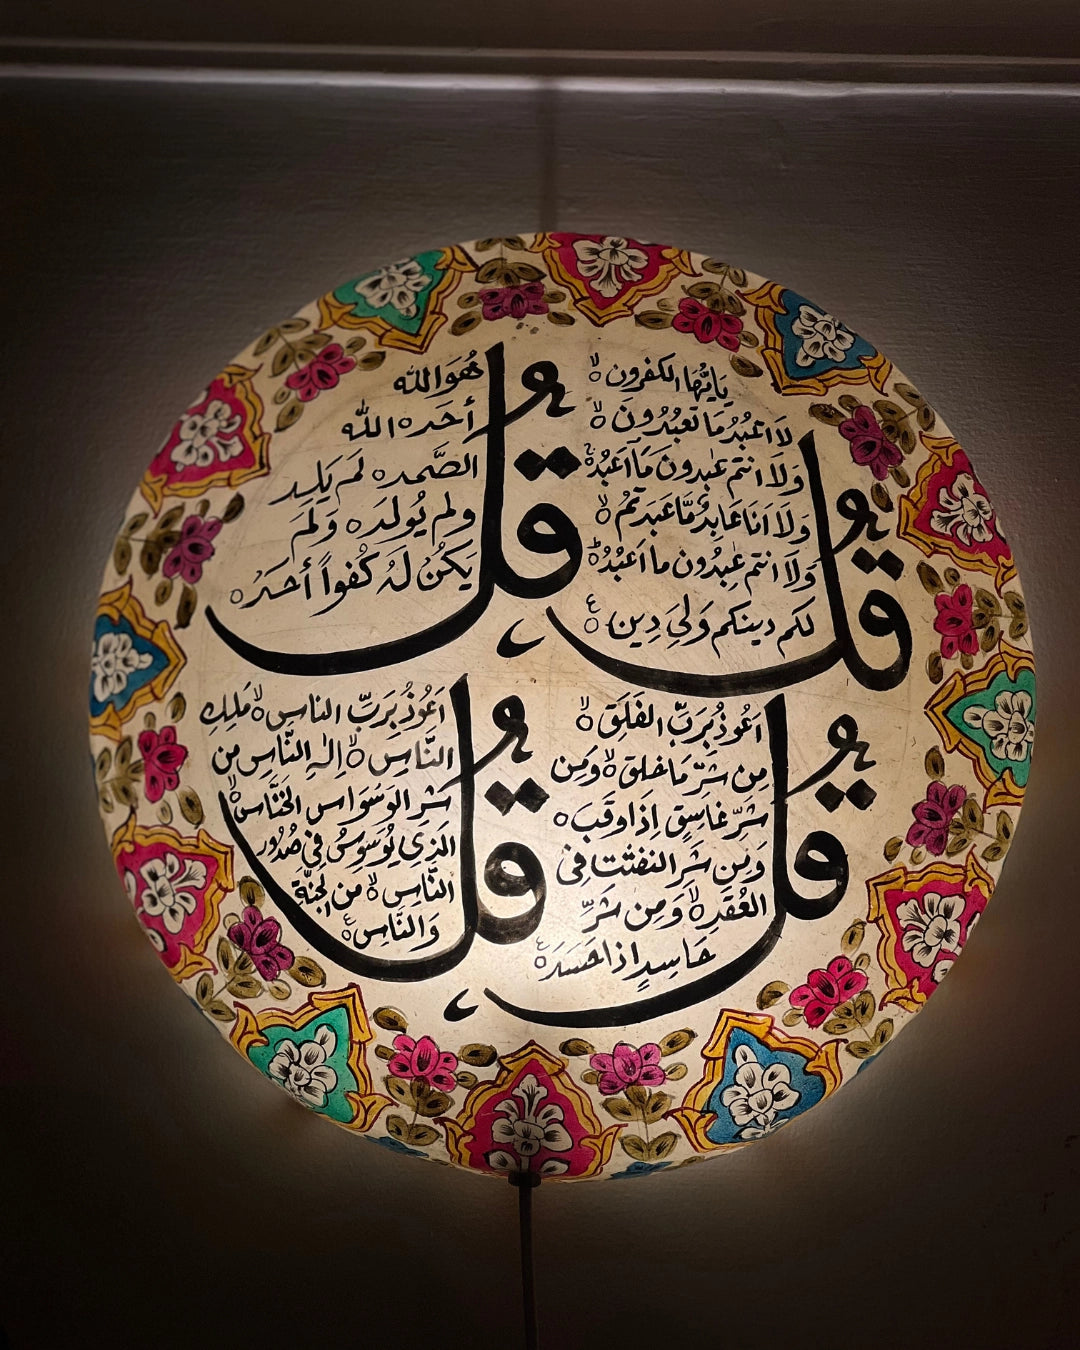 قُل
يَاَيُّهَا الكفرون ۙ
لَا اَعْبُدُ مَا تَعبُدُونَ ۙ
وَلَا انتم عٰبِدون مَآ اَعبُدُ ۚ
وَلَا اَنَا عَابِدٌ مَّا عَبَدتُّم ۙ
وَلَا انتم عٰبِدُون ما اَعْبُدُ ؕ
لكم دينكم وَلِيَ دِين
قُل
هُوَ الله
أحَده الله
الصَّمده لَم يَلِد
ولم يُولَده وَلَم
يَكُنْ لَهُ كُفواً أحَدْه
قُل
اَعُوذُ بِرَبِّ الفَلَقِ ۙ
مِن شَرِّ مَا خلق ۙ وَمِن
شَرِّ غَاسِقٍ اِذَا وَقَبَ ه
وَمِن شَرِ النفثت فِى
العُقَدِ ۙ وَمِن شَرِّ
حَاسِدٍ اذا حَسَدَ
قُل
اَعُوذُ بِرَبِّ الناسِ ۙ مَلِكِ
النَّاسِ ۙ اِلٰهِ النَّاسِ من
شَرِ الوَسوَاسِ الخَنَّاسِ ۙ
الَذِى يُوَسوِسُ فِى صُدُور
النَّاسِ ۙ من الجِنَّةِ
وَالنَّاسِ